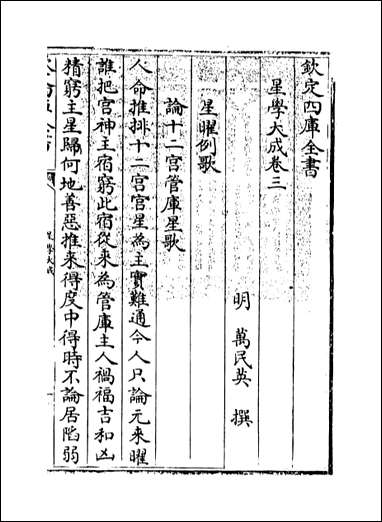 欽定四庫全書
星學大成卷三
明 萬民英 撰
星曜例歌
論十二宫管庫星歌
人命推排十二宫宫星為主實難通今人只論元來曜
誰把宫神主宿窮此宿從來為管庫主人禍福吉和凶
精窮主星歸何地善惡推來得度中得時不論居陷弱
星學大成